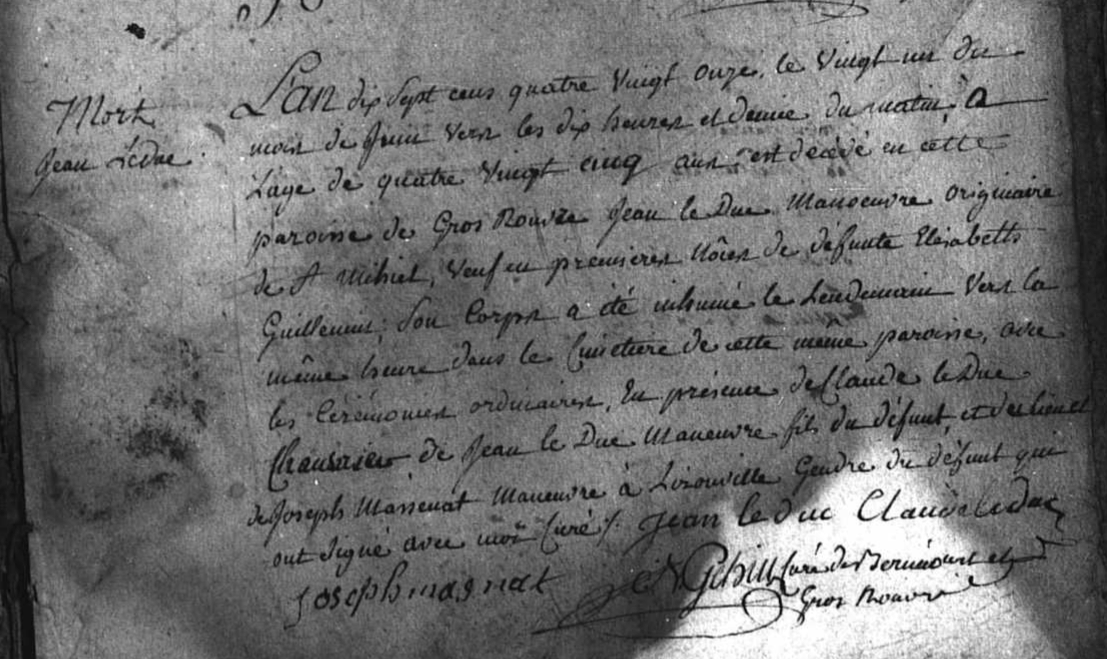 Mort
Jean Leduc
L'an dix sept cens quatre vingt onze, le vingt un du
mois de Juin vers les dix heures et demie du matin, à
L'age de quatre vingt cinq ans est decedé en cette
paroisse de Gros Rouvre Jean le Duc Manoeuvre originaire
de St Mihiel, veuf en premieres nôces de defunte Elisabeth
Guillemin; son Corps a été inhumé le Lendemain vers la
même heure dans le Cimetiere de cette même paroisse, avec
les Cérémonies ordinaires, En présence de Claude le Duc
de Jean le Duc Maneuvre fils du défunt, et
de Joseph Maneuvre à Gendre du défunt qui
ont signé avec moi Curé /.
Jean leduc Claude Leduc
Joseph magnat
Curé de Bernécourt et
Gros Rouvre